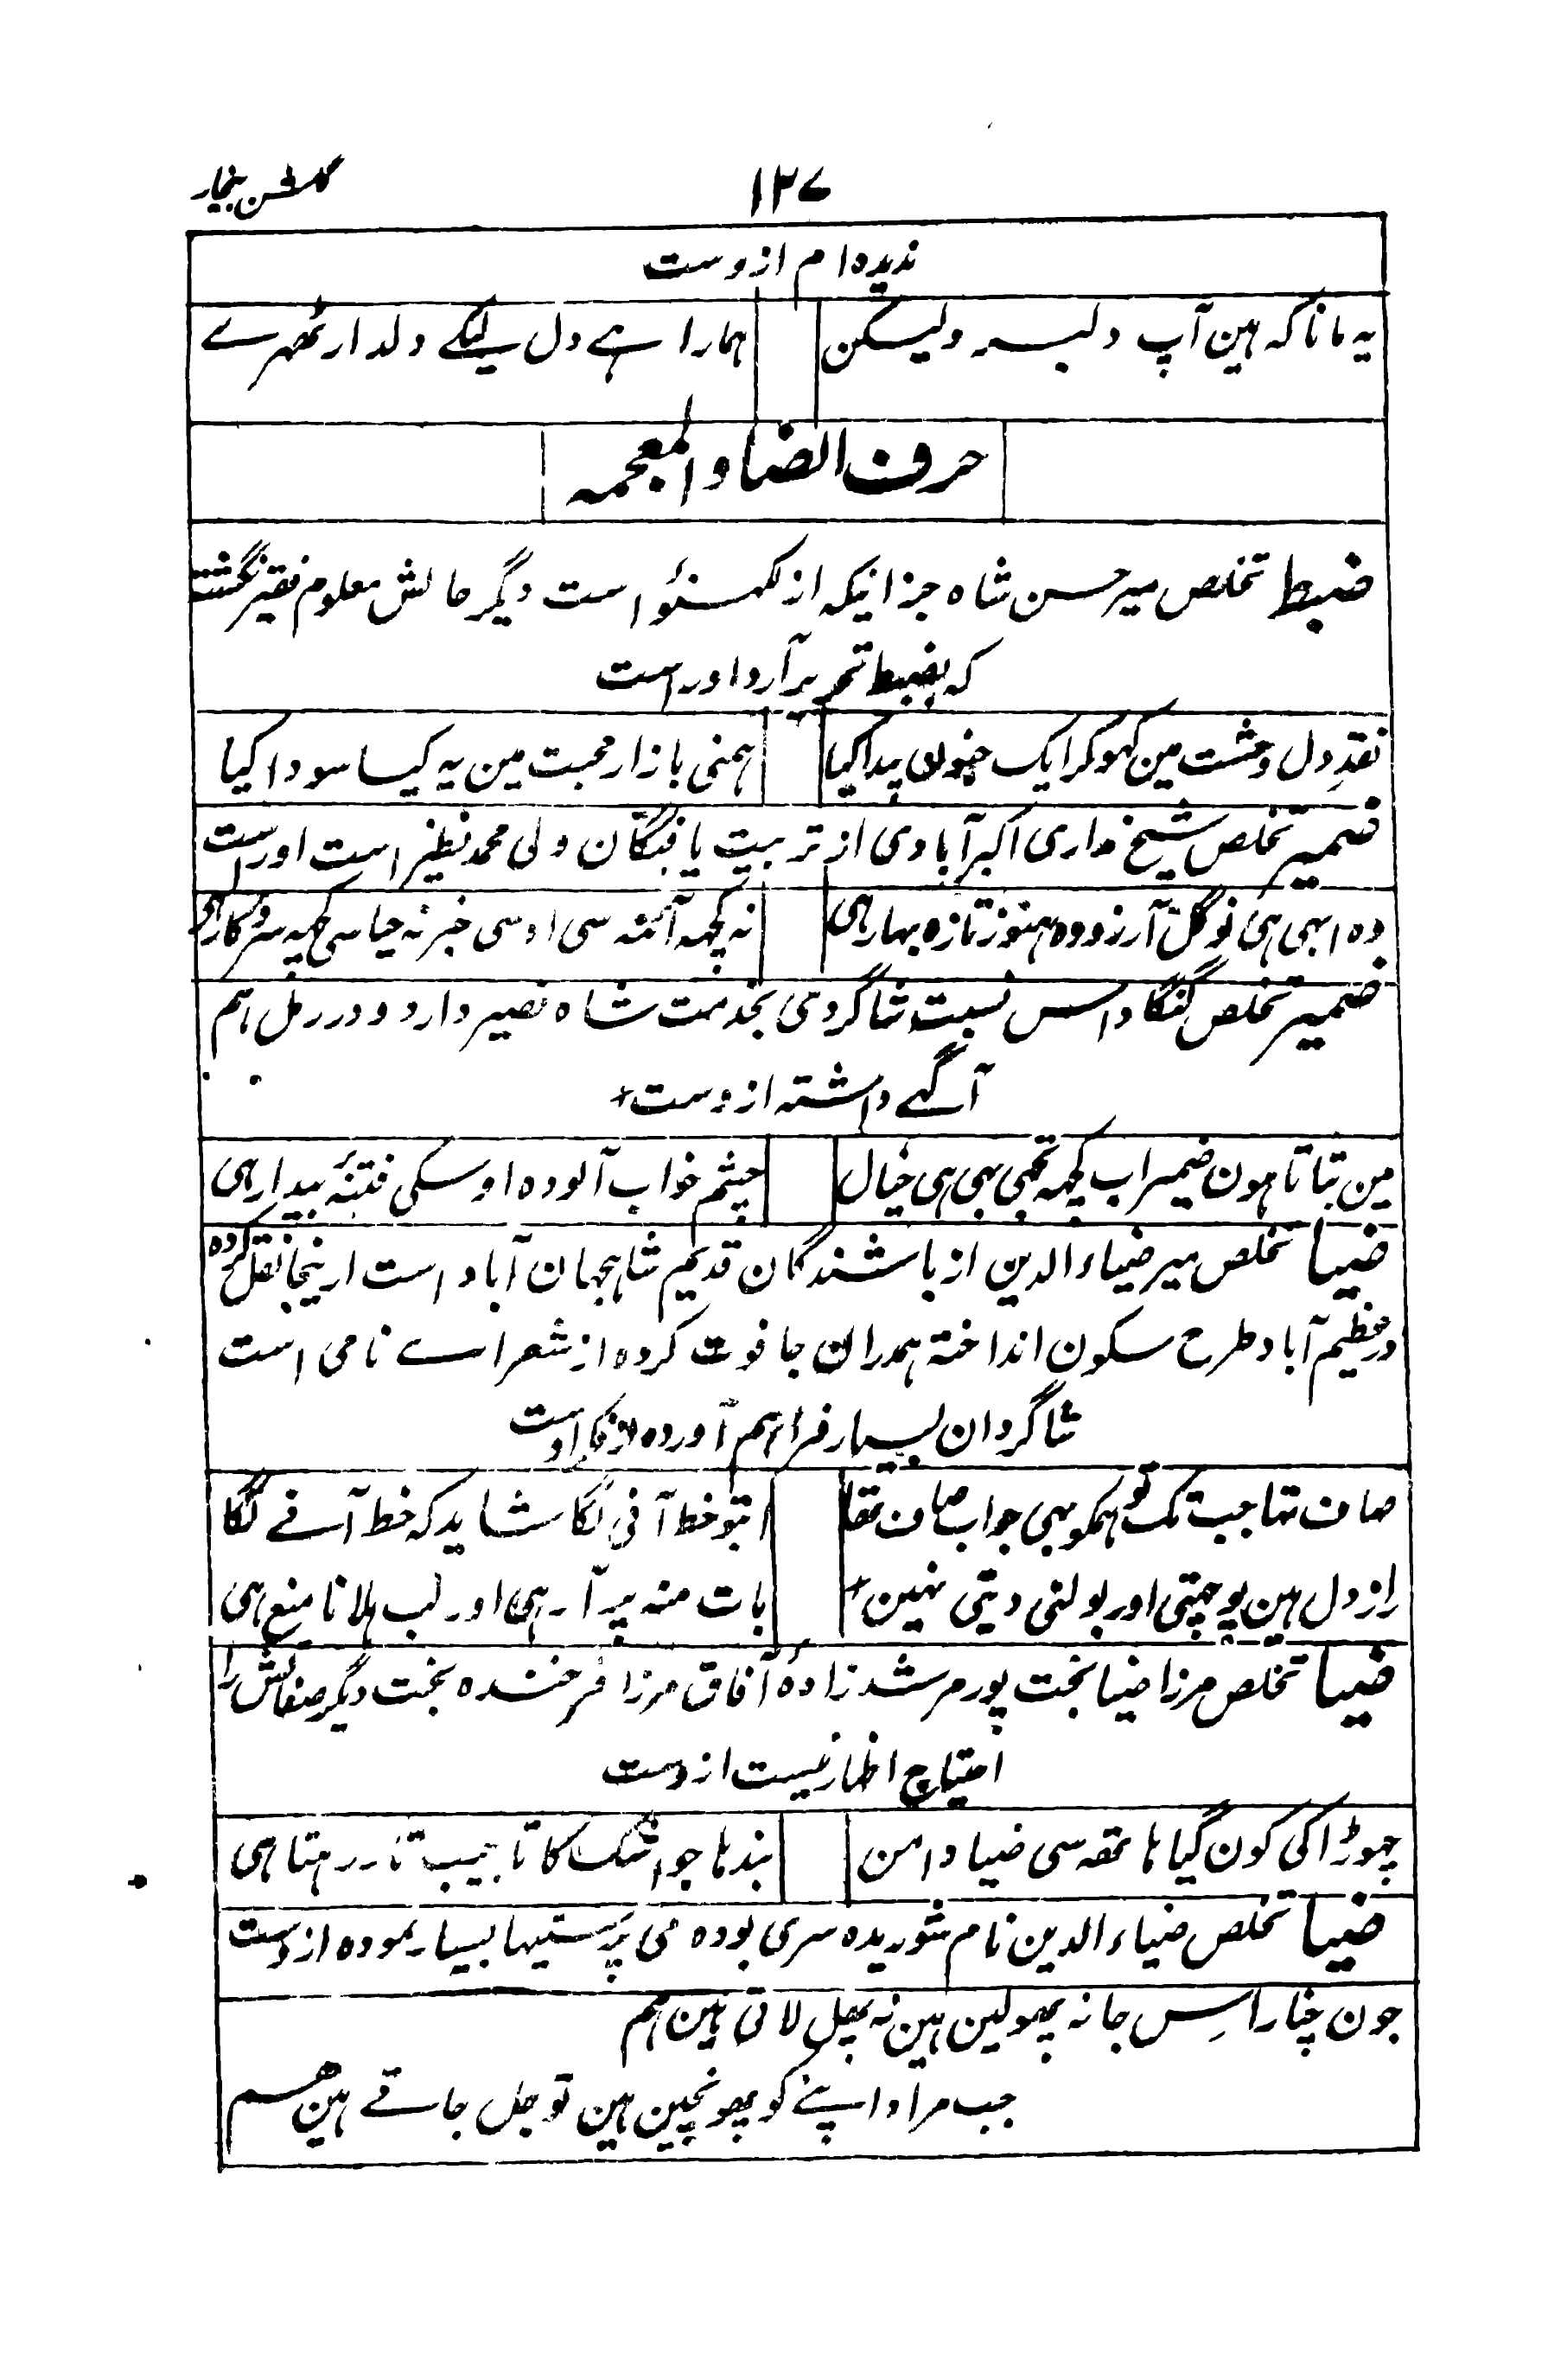 گلشن بیخار
۱۲۷
ندیده ام ازوست
یہ مانا کہ ہین آپ دلبر ولیکن
ہمارا ہے دل لیکے دلدار ٹھہرے
حرف الضاد المعجمہ
ضبط تخلص میر حسن شاہ جز اینکہ از لکہنؤ است دیگر حالش معلوم فقیر نگشتہ
کہ بضبط تحریر آرد اوراست
نقدِ دل وحشت مین کہوکر ایک جنون پیدا کیا
ہمنی بازار محبت مین یہ کیسا سودا کیا
ضمیر تخلص شیخ مداری اکبرآبادی از تربیت یافتگان ولی محمد نظیر است اوراست
وہ ابہی ہی نوگل آرزو وہ ہنوز تازہ بہار ہی
نہ کچہہ آئنہ سی اوسی خبر نہ حیا سی کچہہ سروکار ہی
ضمیر تخلص گنگا داس نسبت شاگردی بخدمت شاہ نصیر دارد و در رمل ہم
آگہے داشتہ ازوست
مین بتاتا ہون ضمیر اب کچہہ تجھی بہی ہی خیال
چشم خواب آلودہ اوسکی فتنۂ بیدار ہی
ضیا تخلص میر ضیاء الدین از باشندگان قدیم شاہجہان آباد است ازینجا نقل کردہ
در عظیم آباد طرح سکون انداختہ ہمدران جا فوت کردہ از شعراے نامی است
شاگردان بسیار فراہم آوردہ از فکر اوست
صاف تہا جب تک تو ہمکو بہی جواب صاف تھا
ابتو خط آنی لگا شاید کہ خط آنے لگا
راز دل ہین پوچہتی اور بولنی دیتی نہین
بات منہ پر آرہی ہی اور لب ہلانا منع ہی
ضیا تخلص مرزا ضیا بخت پور مرشد زادۂ آفاق مرزا فرخندہ بخت دیگر صفاتش را
احتیاج اظہار نیست ازوست
چہوڑا کی کون گیا ہاتھہ سی ضیا دامن
بندہا جو اشک کا تا جیب تار رہتا ہی
ضیا تخلص ضیاء الدین نام شوریدہ سری بودہ می پرستیہا بسیار نمودہ ازوست
جون چنار اِس جا نہ پھولین ہین نہ پھل لاتی ہین ہم
جب مراد اپنے کو پھونچین ہین تو جل جاتے ہین ہم